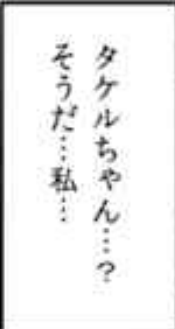 タケルちゃん…?
そうだ…私…